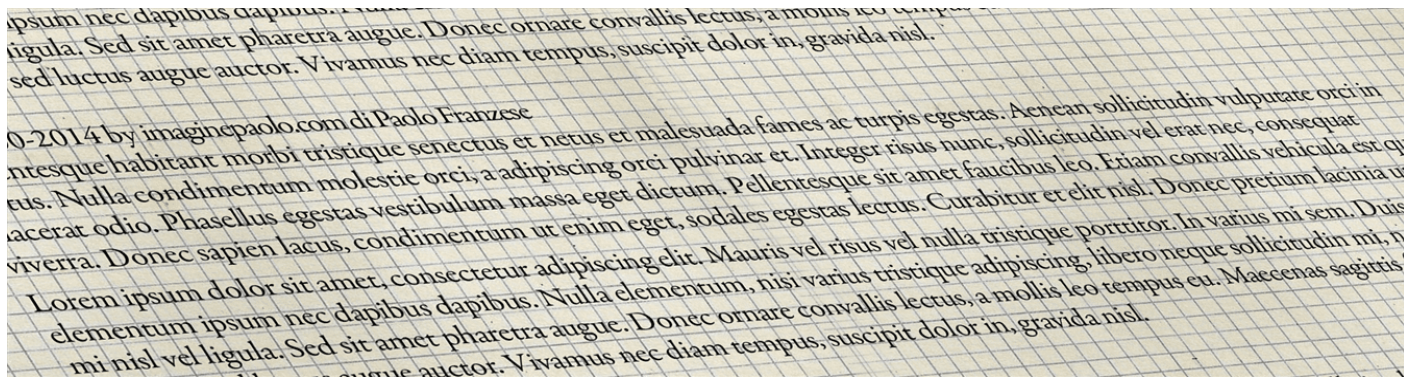 ipsum nec dapibus dapibus.
ligula. Sed sit amet pharetra augue. Donec ornare convallis lectus, a mollis leo tempus
sed luctus augue auctor. Vivamus nec diam tempus, suscipit dolor in, gravida nisl.
0-2014 by imaginepaolo.com di Paolo Franzese
ntesque habitant morbi tristique senectus et netus et malesuada fames ac turpis egestas. Aenean sollicitudin vulputate orci in
tus. Nulla condimentum molestie orci, a adipiscing orci pulvinar et. Integer risus nunc, sollicitudin vel erat nec, consequat
acerat odio. Phasellus egestas vestibulum massa eget dictum. Pellentesque sit amet faucibus leo. Etiam convallis vehicula est qu
viverra. Donec sapien lacus, condimentum ut enim eget, sodales egestas lectus. Curabitur et elit nisl. Donec pretium lacinia
Lorem ipsum dolor sit amet, consectetur adipiscing elit. Mauris vel risus vel nulla tristique porttitor. In varius mi sem. Duis
elementum ipsum nec dapibus dapibus. Nulla elementum, nisi varius tristique adipiscing, libero neque sollicitudin mi,
mi nisl vel ligula. Sed sit amet pharetra augue. Donec ornare convallis lectus, a mollis leo tempus eu. Maecenas sagittis
augue auctor. Vivamus nec diam tempus, suscipit dolor in, gravida nisl.